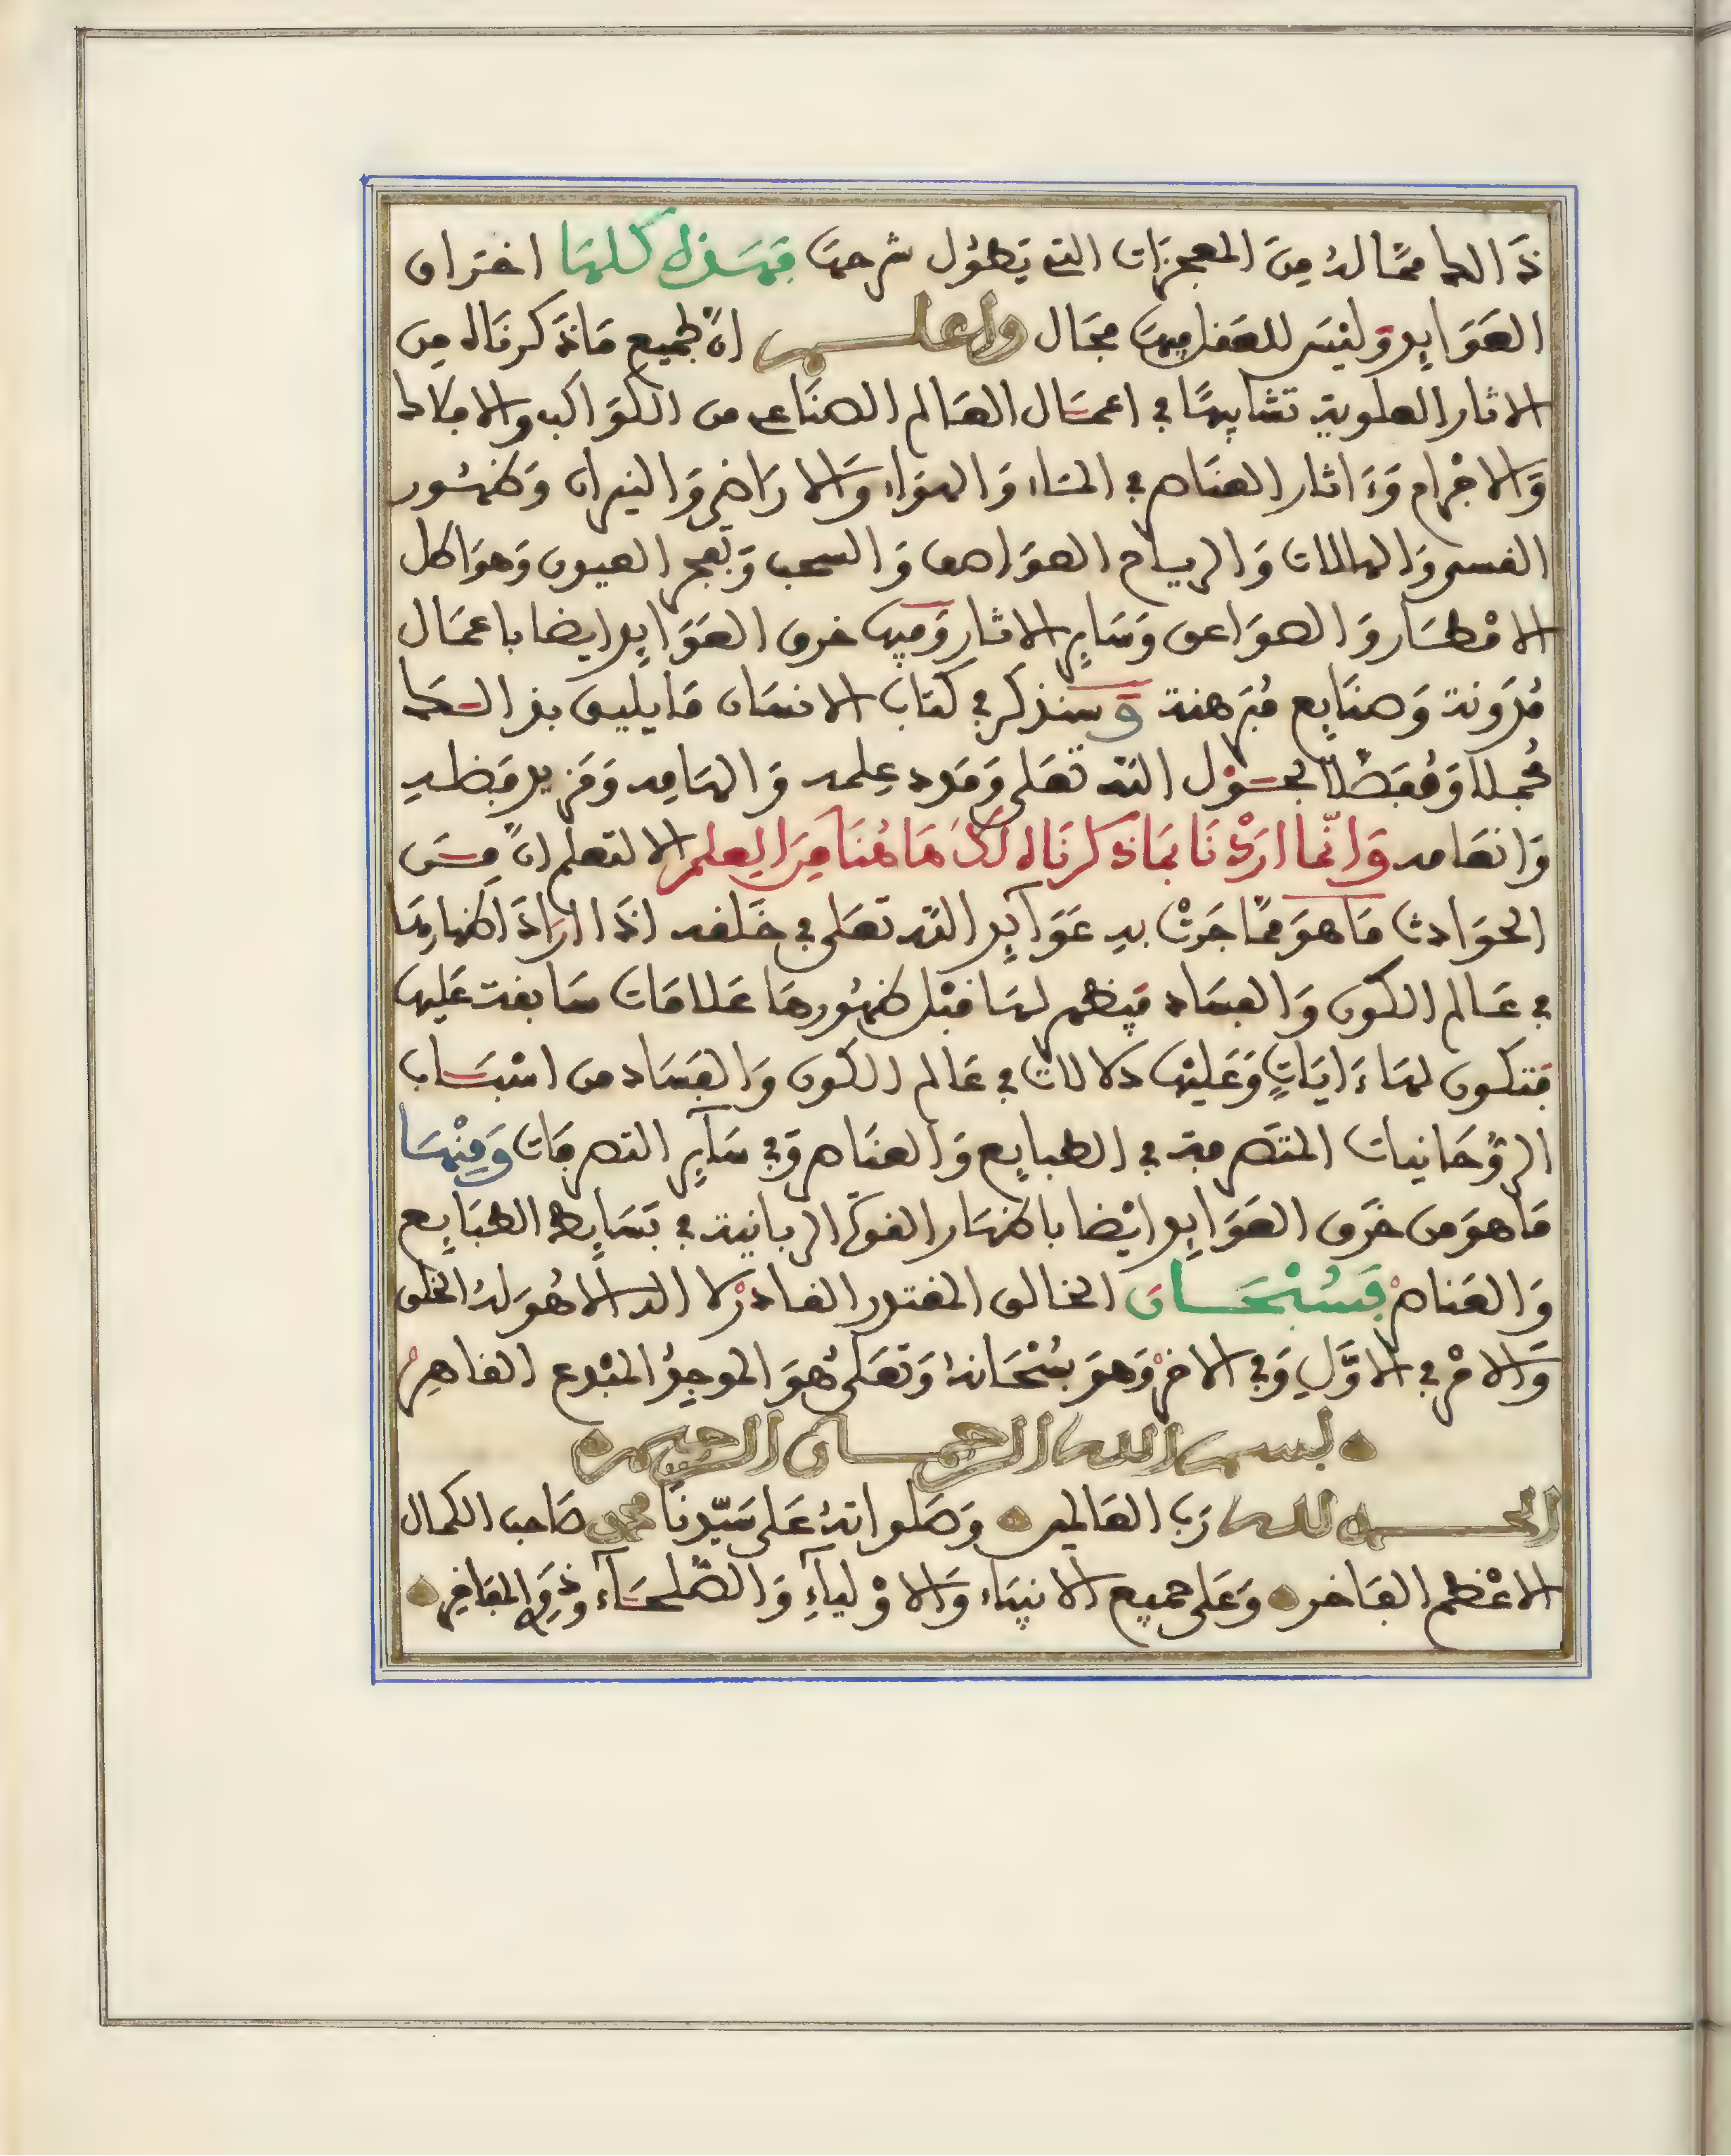 ذَالك ممَّا لهُ مِنَ المعجزَات التي يَطُول شرحهَا فهَذه كلهَا اختراق
العَوَايد وَليْسَ للعَقل فيهَا مجَال واعلم انّ جميع مَا ذَكرنَاه مِن
الاثار العلوية تشابهًا في اعمَال العَالم الصنَاعي من الكوَاكب والافلاك
وَالاجْرام وَءَاثار العنَاصر في المَاء وَالهوَاء وَالارَاضي وَالنيران وَظهُور
القسي وَالهالات وَالرياح العوَاصف وَالسحب وَتفجر العيون وَهوَاطل
الامْطَار وَالصوَاعق وَسَاير الاثار وَفيهَا خرق العَوَايد ايضا باعمَال
مُدَونة وَصنَايع مُبَرهنة وَسنذكر في كتاب الانسَان مَا يليق بذالك
مُجملا وَمُفَصّلا بحَوْل اللّه تعَلى وَمَدد عِلمه وَالهَامه وَمَزيد فَضله
وَانعَامه وَانّما ارَدْنَا بمَا ذَكرنَاه لكَ هَا هُنَا مِنَ العِلم الا لتعلم انّ مِنَ
الحوَادث مَا هوَ ممَّا جَرتْ به عَوَآيد اللّه تعَلى في خَلقه اذَا ارَادَ اظهَارهَا
في عَالم الكَون وَالفسَاد فيَظهر لهَا قبْل ظهُورهَا عَلامَات سَابقة عَليهَا
فتكون لهَا ءَايَاتٍ وَعَليْهَا دلالات في عَالم الكون وَالفَسَاد من اسْبَاب
الرُّوحَانيات المتَصرفة في الطبايع وَالعنَاصر وَفي سَآير التصرفَات وَمِنْهَا
مَا هوَ من خرَق العَوَايد ايْضا باظهَار القوَى الربانية في بَسَايط الطبَايع
وَالعَناصر فَسُبْحَان الخالق المقتدر القادر لا اله الا هُوَ لهُ الخلق
وَالامْر في الاوَّلِ وَفي الاخر وَهوَ سُبْحَانهُ وَتعَلى هوَ الموجِدُ المبْدع القاهِر
بسم الله الرحمان الرحيم
الحمد لله رَب العَالمين وَصَلواتهُ عَلى سَيّدِنَا محمد صَاحب الكمال
الاعْظم الفَاخر وَعَلى جميع الانبيَاء وَالاوْليآءِ وَالصُّلحَآء وَذوِي المفَاخِر